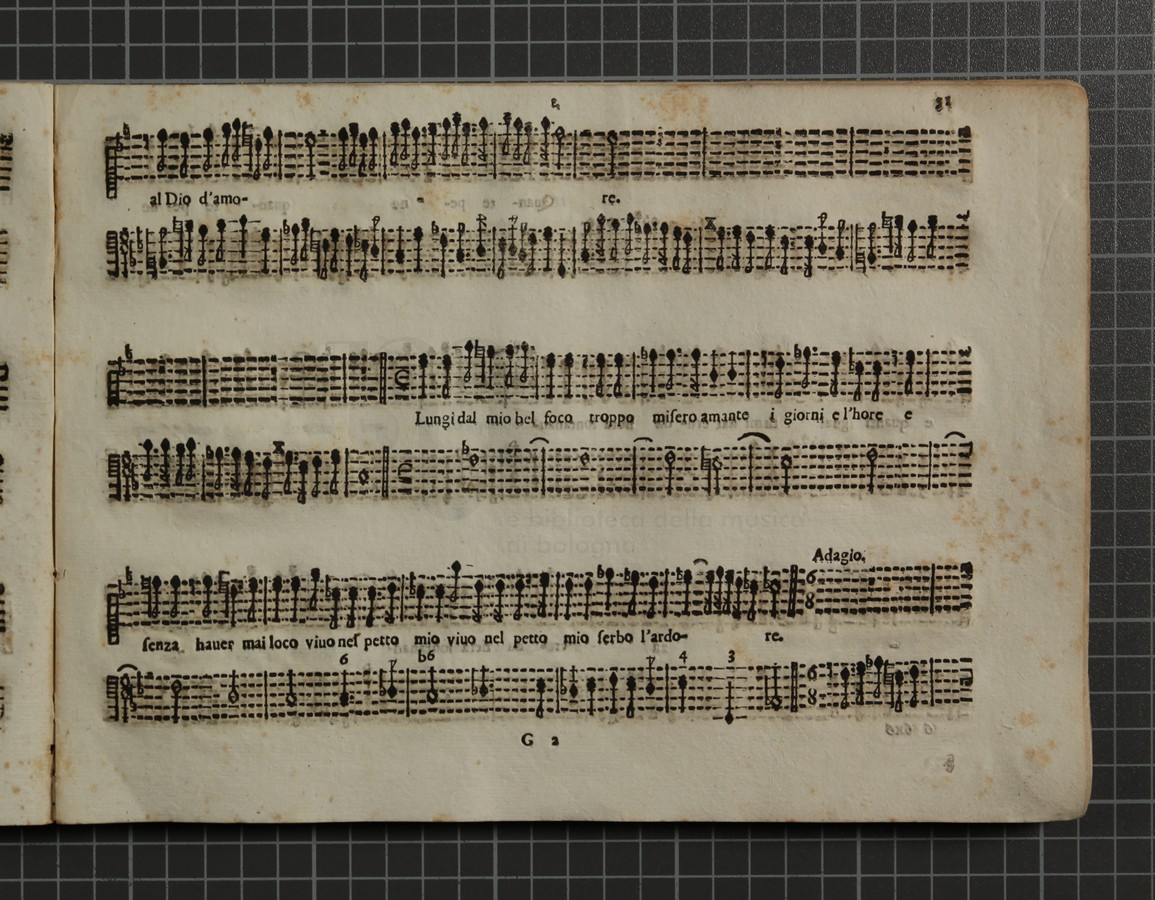 al Dio d'amo- - re.
Lungi dal mio bel foco troppo misero amante i giorni e l'hore e
Adagio.
senza hauer mai loco viuo nel petto mio viuo nel petto mio serbo l'ardo- re.
6 b6 4 3
G 2